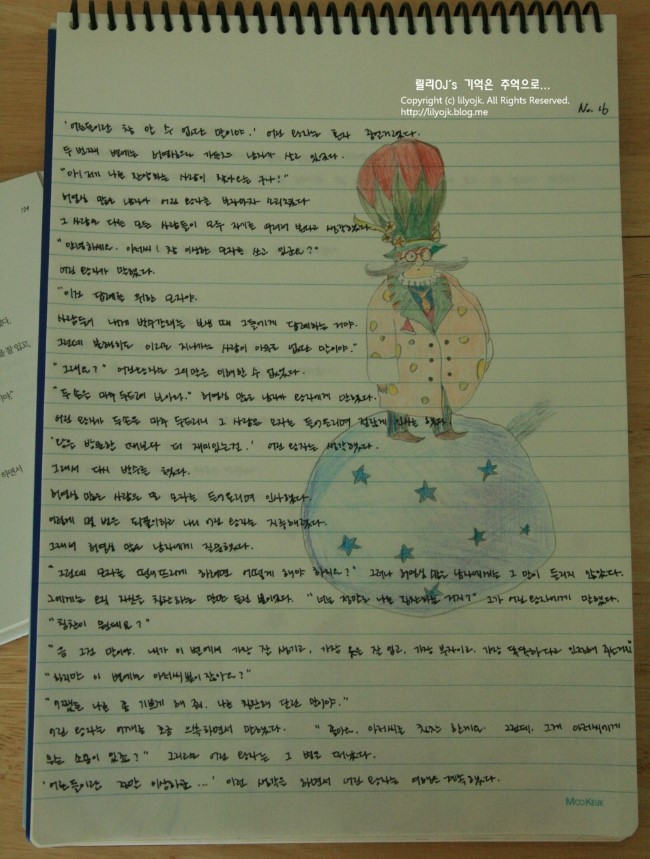 릴리OJ's 기억은 추억으로...
Copyright (c) lilyojk. All Rights Reserved.
http://lilyojk.blog.me
No. 16
'어른들이란 참 알 수 없단 말이야.' 어린 왕자는 혼자 중얼거렸다.
두 번째 별에는 허영심으로 가득찬 남자가 살고 있었다.
"아! 저기 나를 찬양하는 사람이 찾아오는 구나!"
허영심 많은 남자가 어린 왕자를 보자마자 소리쳤다
그 사람은 다른 모든 사람들이 모두 자기를 생각했다.
"안녕하세요. 아저씨! 참 이상한 모자를 쓰고 있군요?"
어린 왕자가 말했다.
"이건 답례를 위한 모자야.
사람들이 나에게 박수갈채를 보낼 때 그들에게 답례하는 거야.
그런데 불행하도 이리로 지나가는 사람이 아무도 없단 말이야."
"그래요?" 어린왕자는 그의 말을 이해할 수 없었다.
"두 손을 마주 두드려 보아라." 허영심 많은 남자가 왕자에게 말했다.
어린 왕자가 두 손을 마주 두드리니 그 사람은 모자를 들어올리며 점잖게 인사를 했다.
' 방문한 때보다 더 재미있는걸.' 어린 왕자는 생각했다.
그래서 다시 박수를 쳤다.
허영심 많은 사람은 또 모자를 들어올리며 인사했다.
이렇게 몇 번은 되풀이하고 나니 어린 왕자는 지루해졌다.
그래서 허영심 많은 남자에게 질문했다.
"그런데 모자를 떨어뜨리게 하려면 어떻게 해야 하지요?" 그러나 허영심 많은 남자에게는 그 말이 들리지 않았다.
그에게는 오직 자신을 칭찬하는 말만 들린 것이었다. "너는 정말로 나를 거지?" 그가 어린 왕자에게 말했다.
"칭찬이 뭔데요?"
"음 그건 말이야. 내가 이 별에서 가장 잘 생기고, 가장 옷을 잘 입고, 가장 부자이고, 가장 똑똑하다고 인정해 주는거지"
"하지만 이 별에는 아저씨뿐이잖아요?"
"어쨌든 나를 좀 기쁘게 해 줘. 나를 칭찬해 달란 말이야."
어린 왕자는 어깨를 조금 으쓱하면서 말했다. "좋아요, 아저씨를 칭찬 할게요. 그런데, 그게 아저씨에게
무슨 소용이 있죠?" 그리고는 어린 왕자는 그 별을 떠났다.
'어른들이란 정말 이상하군...' 이런 생각을 하면서 어린 왕자는 여행을 계속했다.
MOOKEUK